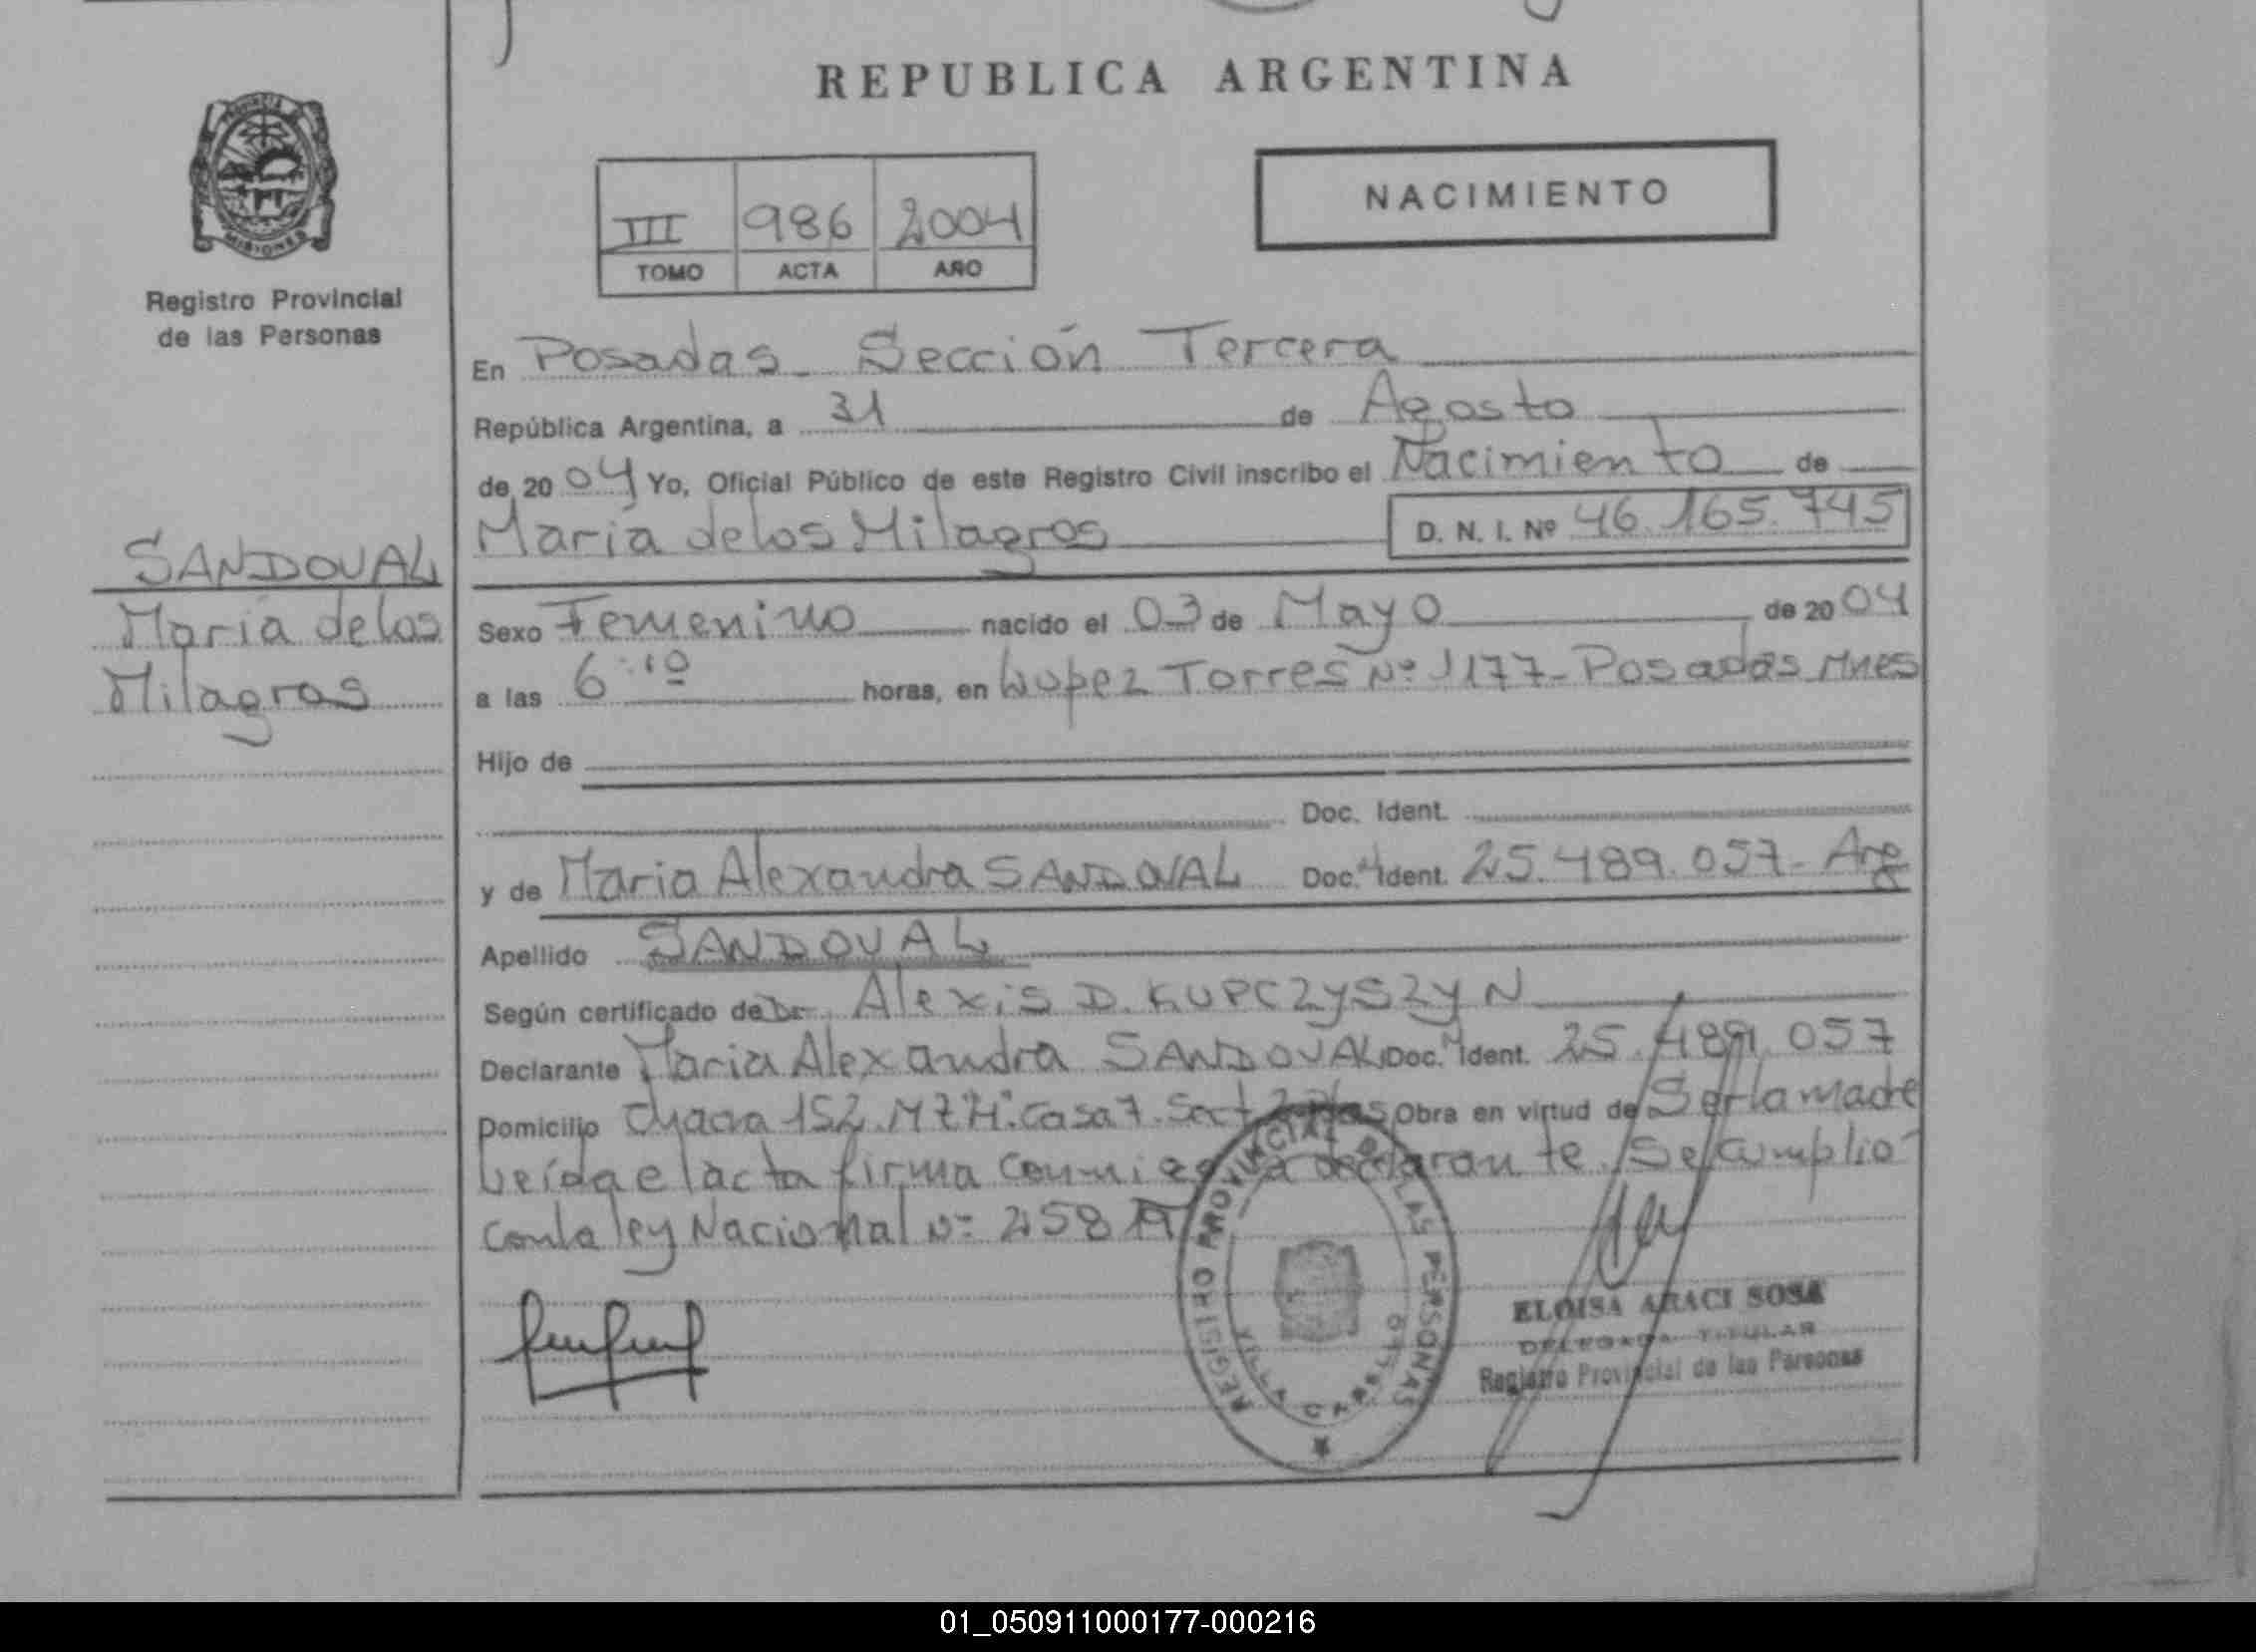 REPUBLICA ARGENTINA
PROVINCIA
MISIONES
Registro Provincial
de las Personas
NACIMIENTO
III 986 2004
TOMO ACTA AÑO
En Posadas. Sección Tercera
República Argentina, a 31 de Agosto
de 2004 Yo, Oficial Público de este Registro Civil inscribo el Nacimiento de
María de los Milagros D. N. I. Nº 46.165.745
SANDOVAL
María de los
Milagros
Sexo Femenino nacido el 03 de Mayo de 2004
a las 6:10 horas, en Lopez Torres Nº 1177-Posadas Mnes
Hijo de
Doc. Ident.
y de Maria Alexandra SANDOVAL Doc. Ident. 25.489.057- Arg
Apellido SANDOVAL
Según certificado de Dr. Alexis D. KUPCZYSZYN
Declarante Maria Alexandra SANDOVAL Doc. Ident. 25.489.057
Domicilio Chacra 152. Mz H. Casa 7. Obra en virtud de Ser la madre
Leída el acta firma conmigo la declarante. Se cumplio
con la ley Nacional Nº
REGISTRO PROVINCIAL DE LAS PERSONAS
ELOISA ARACI SOSA
DELEGADA TITULAR
Registro Provincial de las Personas
01_050911000177-000216